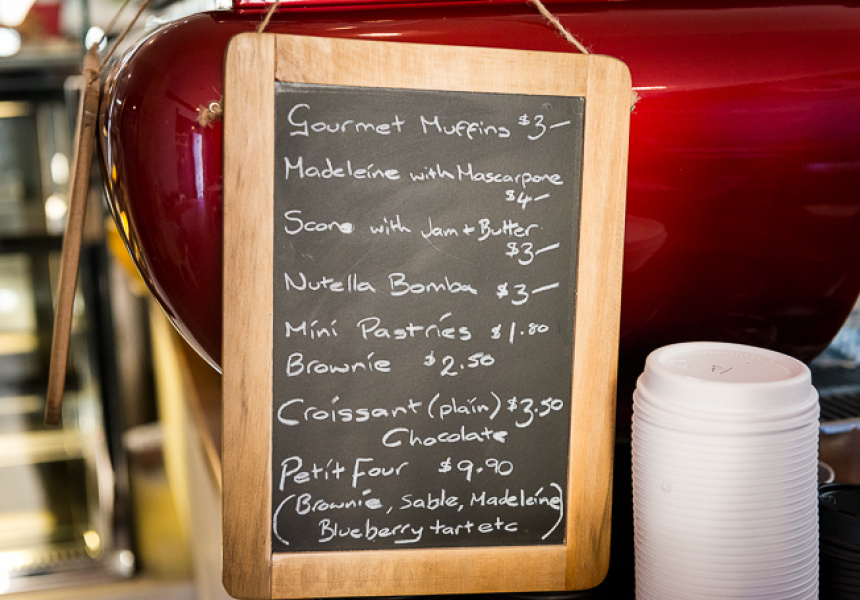 Gourmet Muffins $3—
Madeleine with Mascarpone
$4—
Scone with Jam + Butter
$3—
Nutella Bomba $3—
Mini Pastries $1.80
Brownie $2.50
Croissant (plain) $3.50
Chocolate
Petit Four $9.90
(Brownie, Sable, Madeleine
Blueberry tart etc)